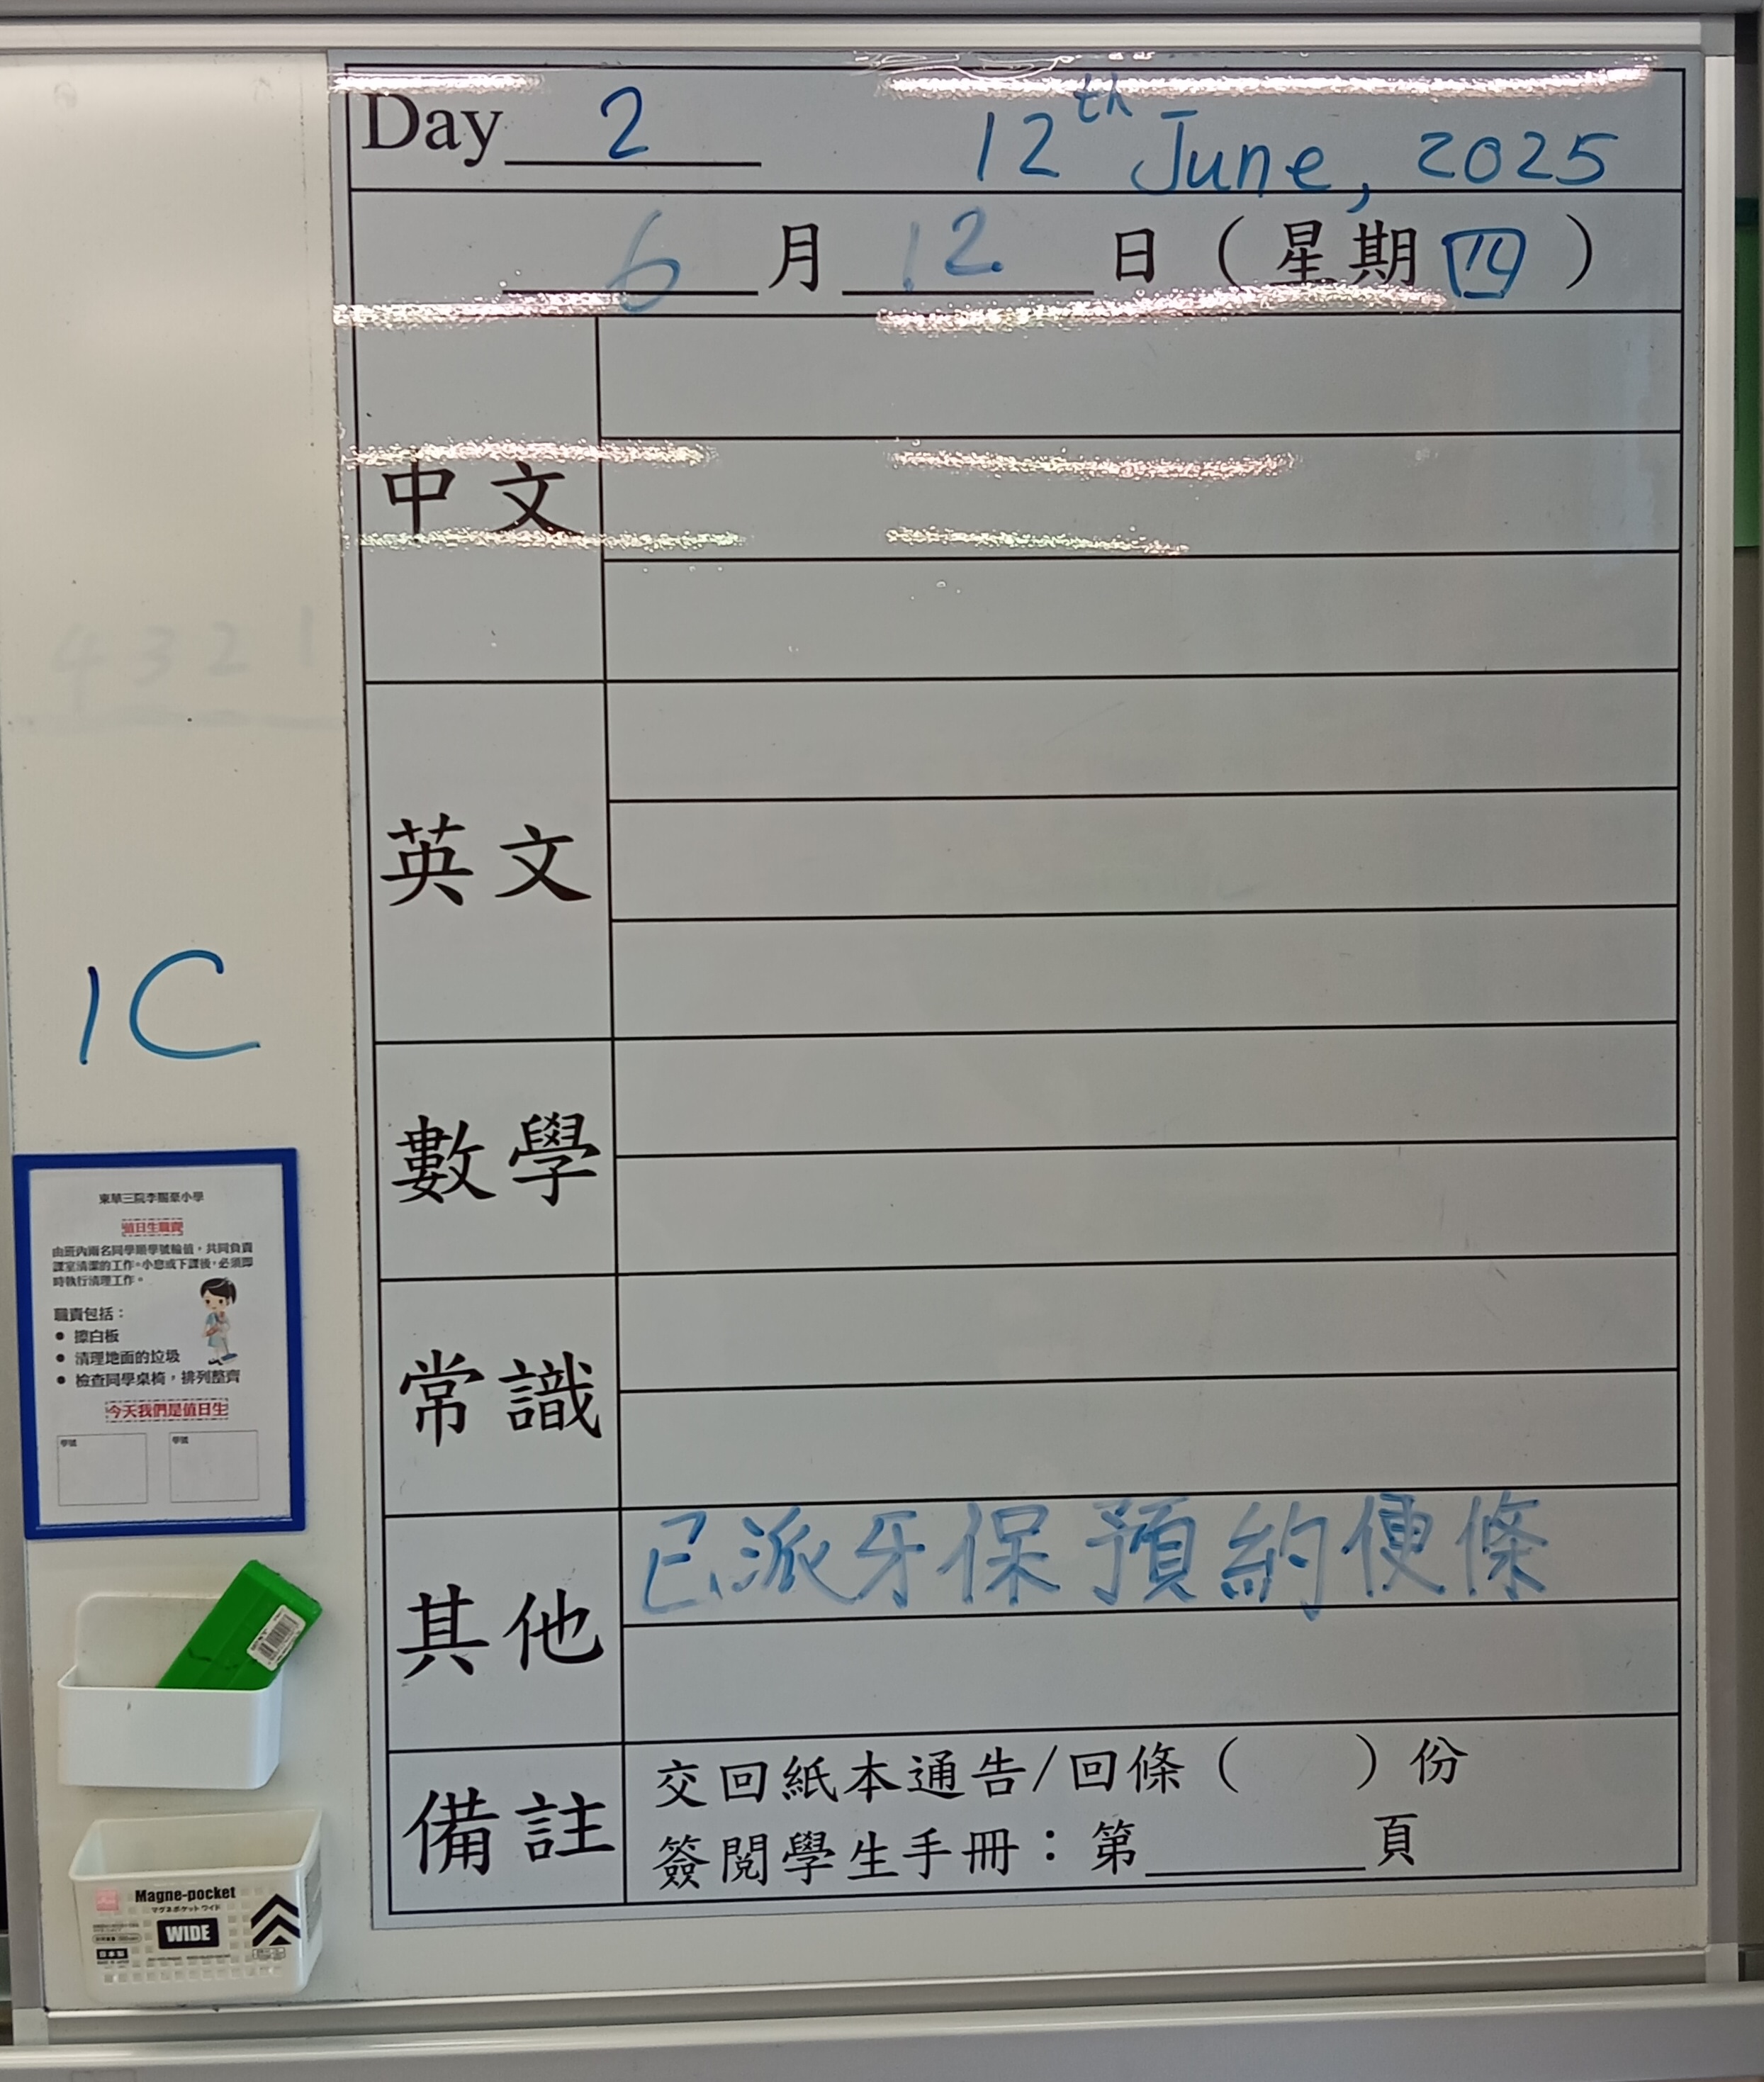 Day 2 12th June, 2025
6 月 12 日 ( 星期四 )
中文
英文
數學
常識
其他 已派牙保預約便條
備註 交回紙本通告/回條 ( ) 份
簽閱學生手冊：第 頁
4 3 2 1
1C
東華三院李賜豪小學
值日生職責
由班內兩名同學順學號輪值，共同負責
課室清潔的工作。小息或下課後，必須即
時執行清理工作。
職責包括：
● 擦白板
● 清理地面的垃圾
● 檢查同學桌椅，排列整齊
今天我們是值日生
學號 學號
Magne-pocket
マグネポケット ワイド
WIDE
日本製